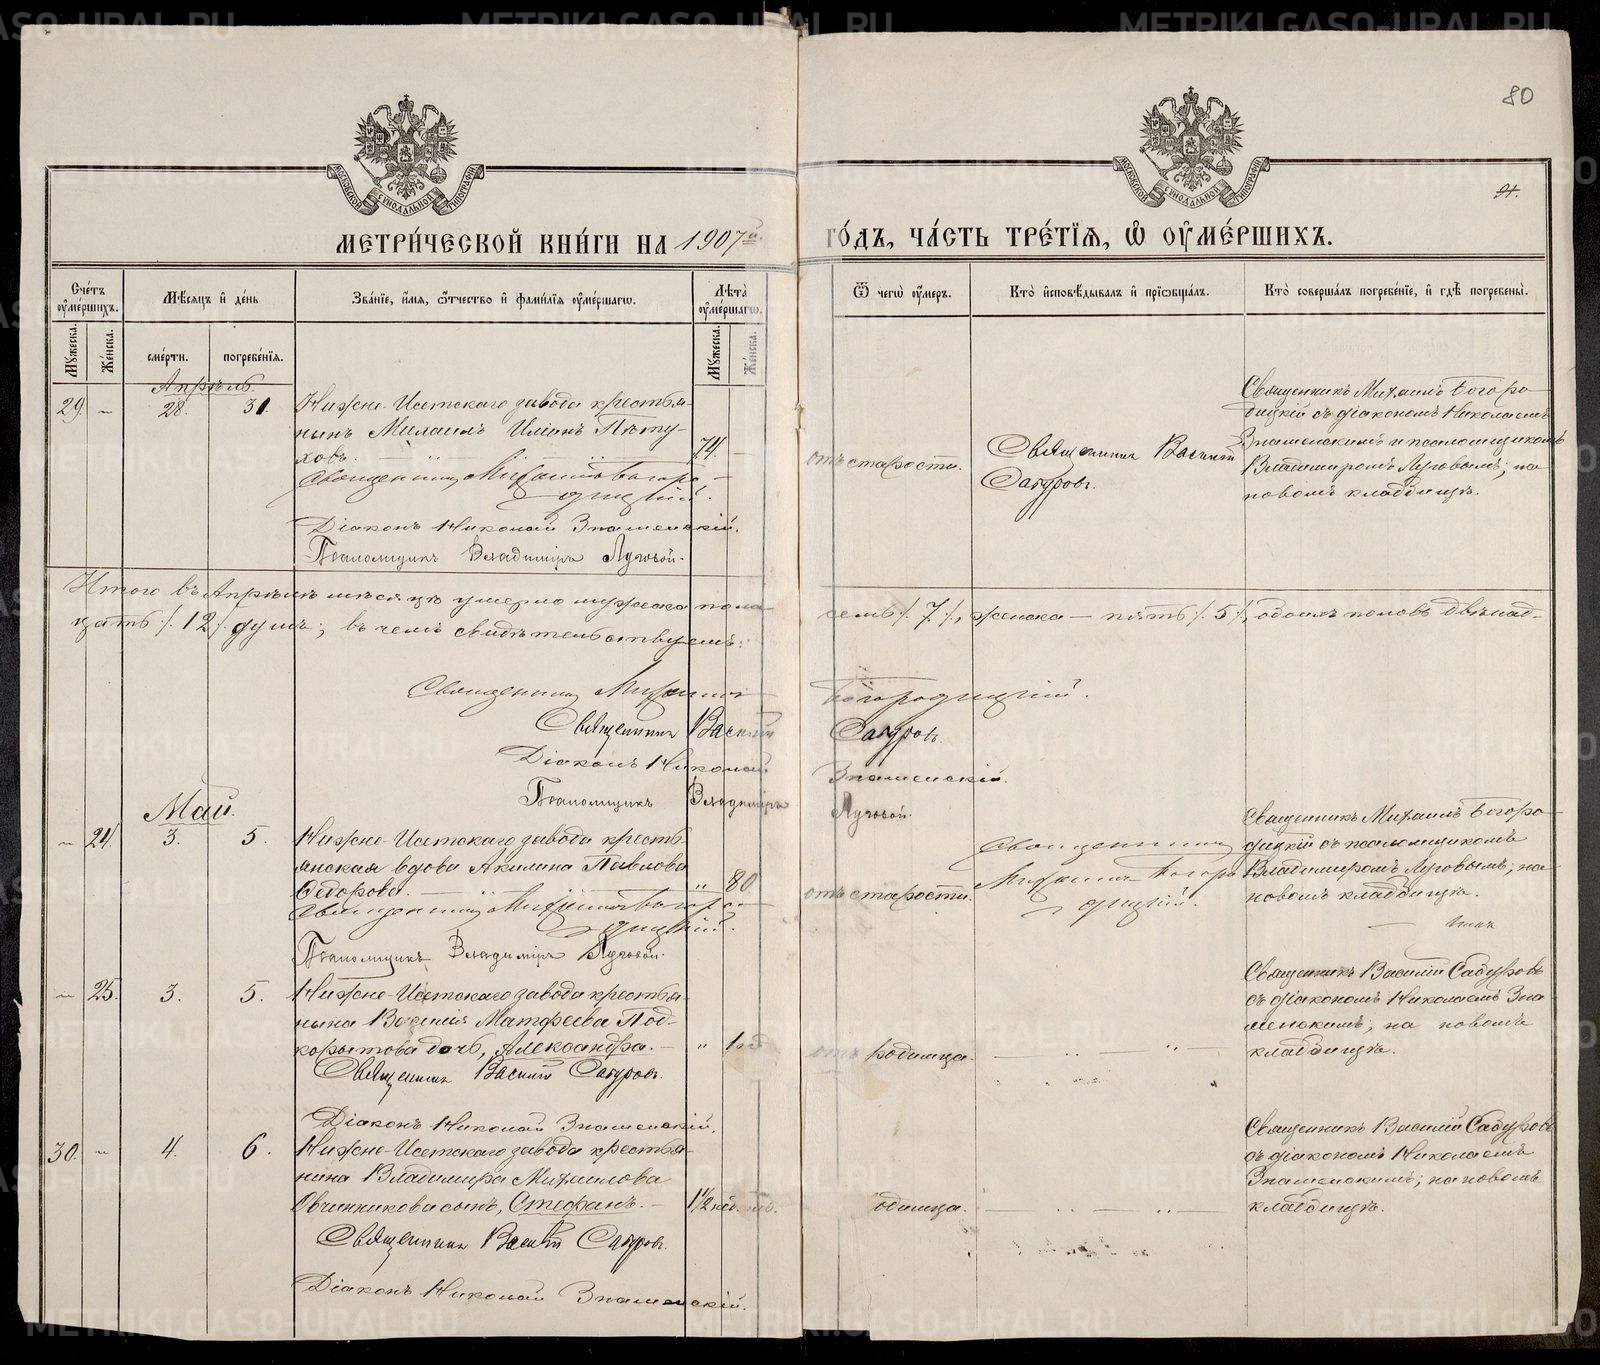 80
91.
МОСКОВСКОЙ СѴНОДАЛЬНОЙ ТИПОГРАФІИ
МОСКОВСКОЙ СѴНОДАЛЬНОЙ ТИПОГРАФІИ
МЕТРИ́ЧЕСКОЙ КНИ́ГИ НА 1907й
ГО́ДЪ, ЧА́СТЬ ТРЕ́ТІѦ, Ѡ҆ ОУ҆МЕ́РШИХЪ.
Сче́тъ оу҆ме́ршихъ.
Мѣ́сяцъ и҆ де́нь
Зва́нїе, и҆́мя, ѻ҆́тчество и҆ фами́лїя оу҆ме́ршагѡ.
Лѣ́та оу҆ме́ршагѡ.
Ѿ чегѡ̀ оу҆́меръ.
Кто̀ и҆сповѣ́дывалъ и҆ прїѡбща́лъ.
Кто̀ соверша́лъ погребе́нїе, и҆ гдѣ̀ погребены̀.
Мꙋ́жеска.
Же́нска.
сме́рти.
погребе́нїя.
Мꙋ́жеска.
Же́нска.
Апрѣль.
29. 28. 30. Нижне-Исетскаго завода крестья-
нинъ Михаилъ Иліинъ Пѣту-
ховъ. 74.
Священникъ Михаилъ Богоро-
дицкій.
Діаконъ Николай Знаменскій.
Псаломщикъ Владиміръ Луговой.
отъ старости.
Священникъ Василій
Сабуровъ.
Священникъ Михаилъ Богоро-
дицкій съ діакономъ Николаемъ
Знаменскимъ и псаломщикомъ
Владимиромъ Луговымъ; на
новомъ кладбищѣ.
Итого въ Апрѣлѣ мѣсяцѣ умерло мужеска пола семь /. 7 /., женска — пять /. 5 /., обоихъ половъ двѣнад-
цать /. 12 /. душъ; въ чемъ свидѣтельствуемъ:
Священникъ Михаилъ Богородицкій.
Священникъ Василій Сабуровъ.
Діаконъ Николай Знаменскій.
Псаломщикъ Владиміръ Луговой.
Май.
24. 3. 5. Нижне-Исетскаго завода кресть-
янская вдова Акилина Павлова
Ѳедорова. 80
Священникъ Михаилъ Богоро-
дицкій.
Псаломщикъ Владиміръ Луговой.
отъ старости.
Священникъ
Михаилъ Богоро-
дицкій.
Священникъ Михаилъ Богоро-
дицкій съ псаломщикомъ
Владимиромъ Луговымъ; на
новомъ кладбищѣ.
25. 3. 5. Нижне-Исетскаго завода крестья-
нина Василія Матѳеева Под-
корытова дочь, Александра.
Священникъ Василій Сабуровъ.
Діаконъ Николай Знаменскій.
отъ родимца.
Священникъ Василій Сабуровъ
съ діакономъ Николаемъ Зна-
менскимъ; на новомъ
кладбищѣ.
30. 4. 6. Нижне-Исетскаго завода крестья-
нина Владимира Михаилова
Овчинникова сынъ, Стефанъ. 1½ нед.
Священникъ Василій Сабуровъ.
Діаконъ Николай Знаменскій.
родимца.
Священникъ Василій Сабуровъ
съ діакономъ Николаемъ
Знаменскимъ; на новомъ
кладбищѣ.
METRIKI.GASO-URAL.RU